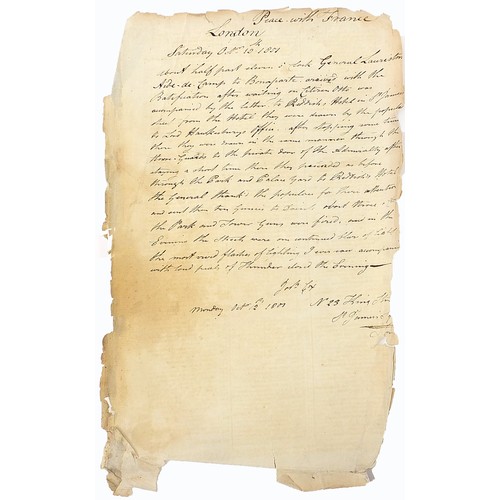 Peace with France
London
Saturday Octr 10th 1801
about half past eleven o'clock General Lauriston
Aide-de-Camp to Bonaparte arrived with the
Ratification after waiting on Citizen Otto was
accompanied by the latter to Reddish's Hotel in St James's
from the Hotel they were drawn by the populace
to Lord Hawkesbury's Office, after stopping some time
there they were drawn in the same manner through the
Horse Guards to the private door of the Admiralty after
staying a short time there they proceeded as before
through the Park and Palace Yard to Reddish's Hotel
the General thank'd the populace for there attention
and sent them ten Guineas to Drink, about three
the Park and Tower Guns were fired, and in the
Evening the Streets were one continued blaze of Light
the most vivid flashes of Lightning I ever saw accompanied
with loud peals of Thunder closed the Evening
Josh
Monday Octr 12th 1801 N 23 King Str
St James's